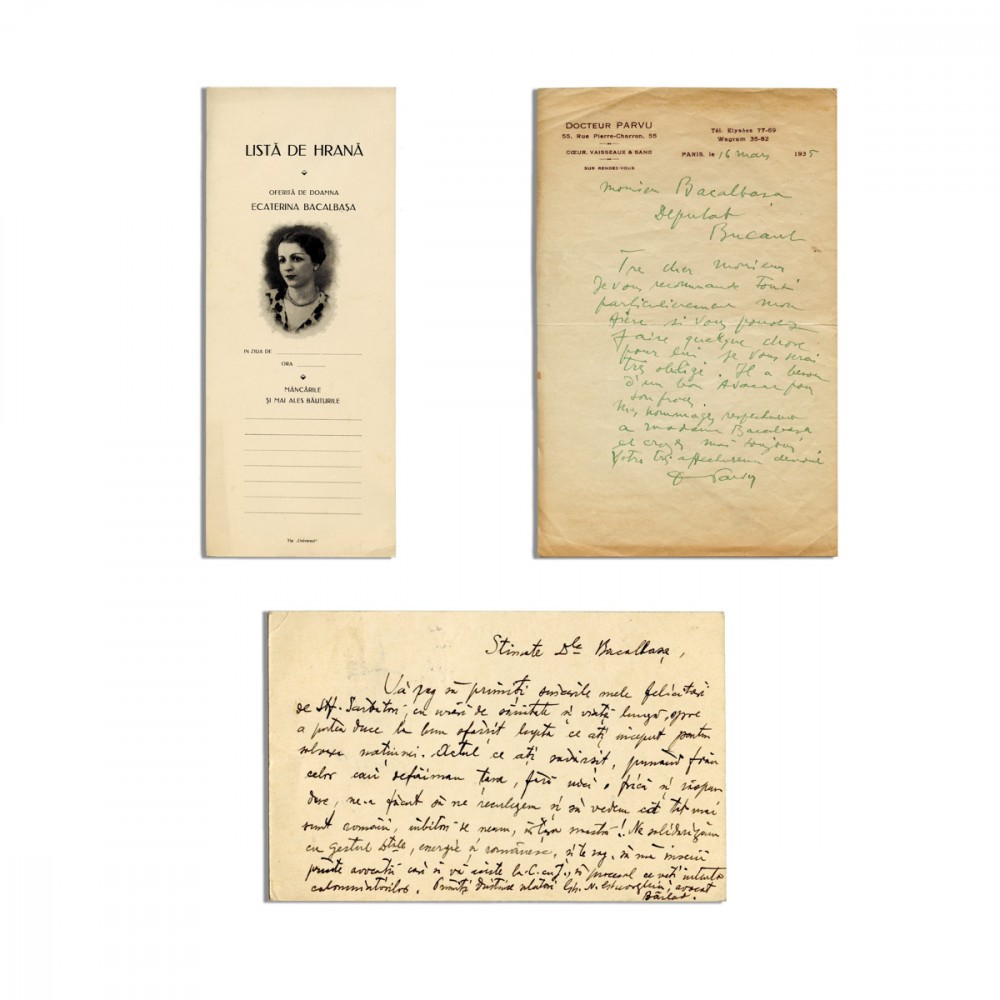 LISTĂ DE HRANĂ
OFERITĂ DE DOAMNA
ECATERINA BACALBAȘA
IN ZIUA DE
ORA
MÂNCĂRILE
ȘI MAI ALES BĂUTURILE
Tip. „Universul”
DOCTEUR PARVU
55, Rue Pierre-Charron, 55
CŒUR, VAISSEAUX & SANG
SUR RENDEZ-VOUS
Tél. Elysées 77-69
Wagram 35-82
PARIS, le 16 mars 1935
Monsieur Bacalbașa
Deputat
Tre cher Monsieur
Je vous recommande
particulierement mon
si vous pouvez
faire quelque chose
pour lui je vous serai
très obligé. Il a besoin
d'un bon avocat pour
son procès.
Mes hommages respectueux
a madame Bacalbașa
et croyez moi toujours
Votre très
Parvu
Stimate Dle Bacalbașa,
Vă rog să primiți sincerile mele felicitări
de Sf. Sărbători, cu urări de sănătate și viață lungă, spre
a putea duce la bun sfârșit lupta ce ați început pentru
națiunei. Actul ce ați săvârșit, punând frâu
celor cari defăimau țara, fără nici o frică și răspun
dere, ne-a făcut să ne reculegem și să vedem că tot mai
sunt români, iubitori de neam, în țara noastră! Ne solidarizăm
cu gestul Dtale, energic și românesc, și te rog să mă înscrii
printre avocații cari să vă asiste la C. cu J., în procesul ce veți intenta
calomniatorilor. Primiți distinse salutări Gh. N. Gheorghiu, avocat
Bârlad.